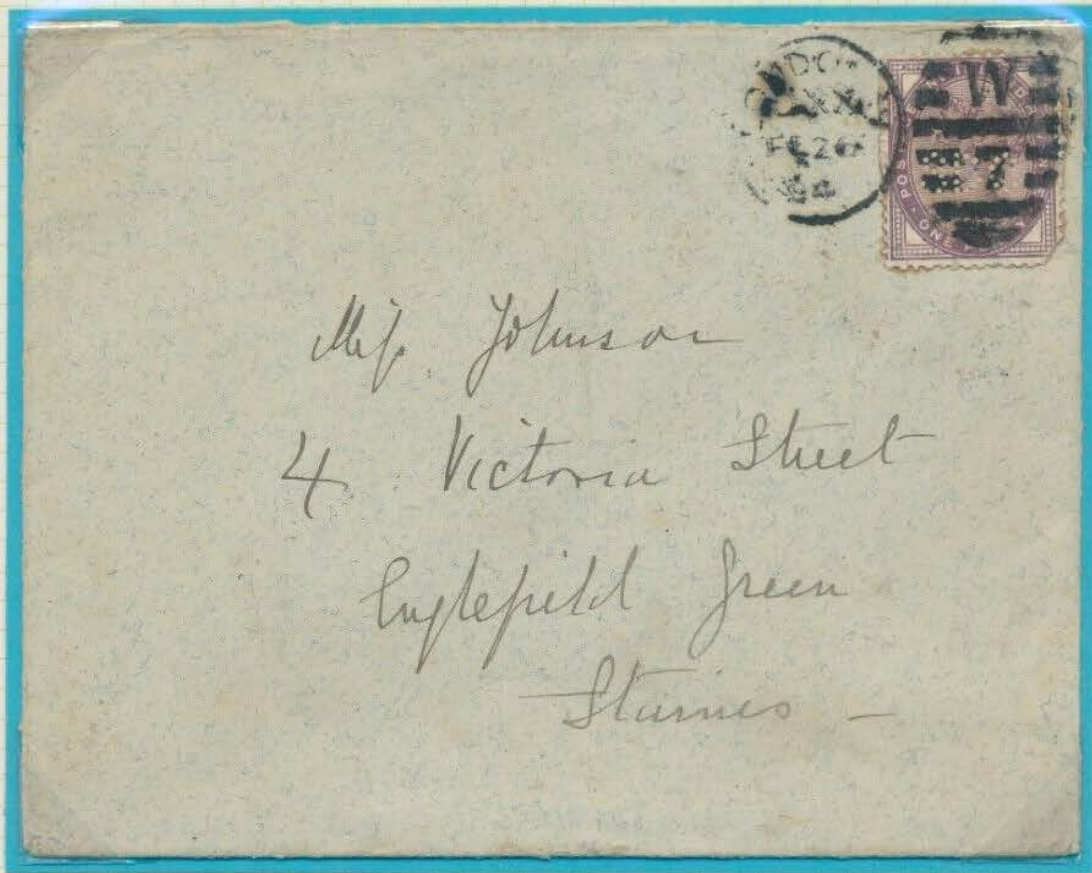 LONDON
FE 26
94
W
7
POS
ONE
Miss Johnson
4 Victoria Street
Englefield Green
Staines -